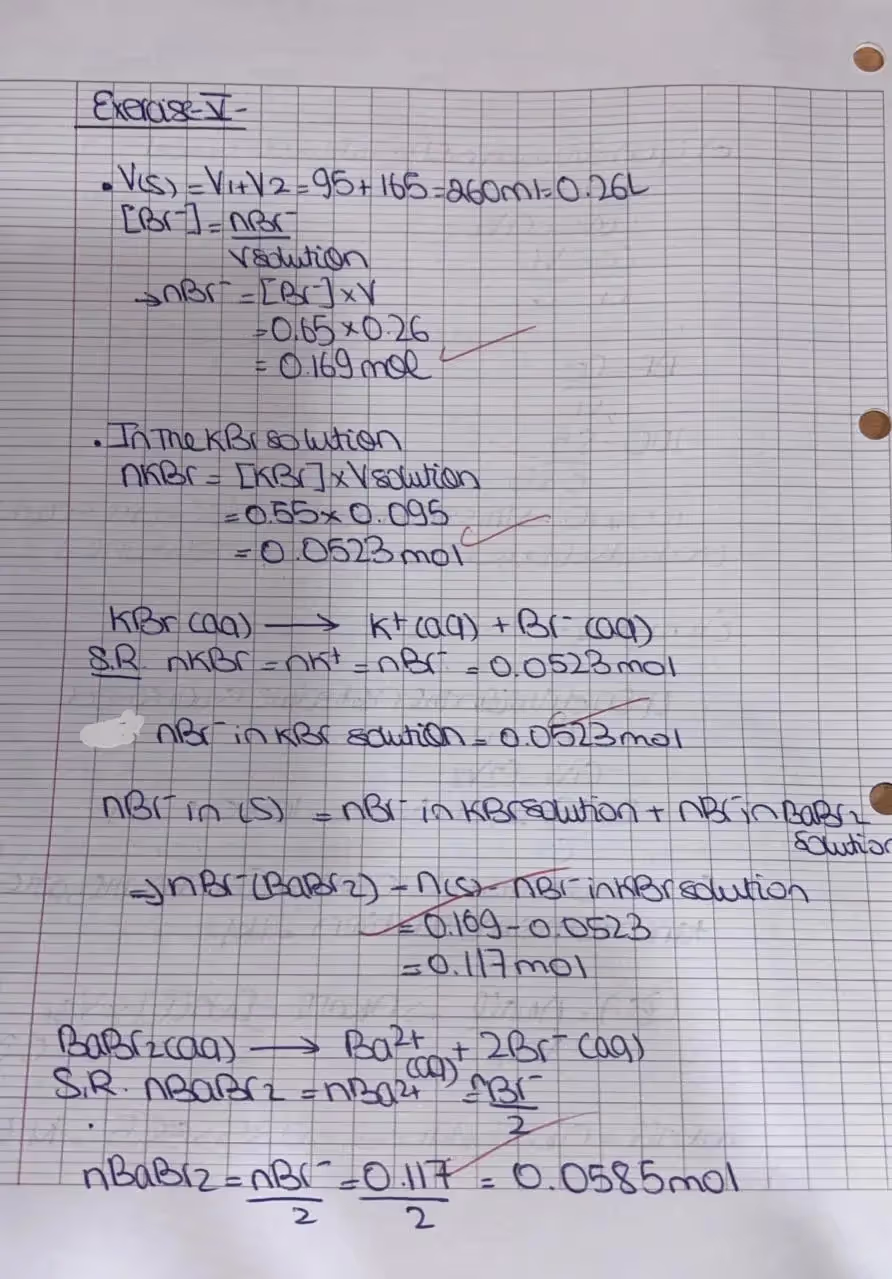 Exercise-V-
. V(S) = V1+V2 = 95+165=260ml=0.26L
[Br-] = nBr-
Vsolution
→nBr- = [Br-]×V
=0.65×0.26
= 0.169mol
. In the KBr solution
nKBr = [KBr]×Vsolution
=0.55×0.095
= 0.0523mol
KBr (aq) → K+ (aq) + Br- (aq)
S.R. nKBr = nK+ = nBr- = 0.0523mol
nBr- in KBr solution = 0.0523mol
nBr- in (S) = nBr- in KBr solution + nBr- in BaBr2
solution
⇒ nBr- (BaBr2) = n(s) - nBr- in KBr solution
= 0.169-0.0523
=0.117mol
BaBr2(aq) → Ba2+ (aq) + 2Br- (aq)
S.R. nBaBr2 = nBa2+ = nBr-
2
nBaBr2 = nBr- = 0.117 = 0.0585mol
2 2